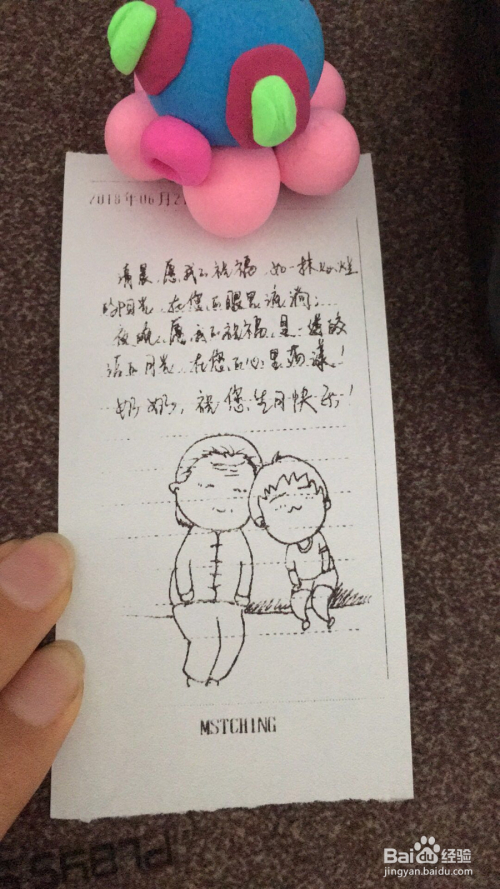 2018年06月2
清晨,愿我的祝福,如一抹灿烂
的阳光,在您的眼里流淌;
夜晚,愿我的祝福,是一缕皎
洁的月光,在您的心里荡漾!
奶奶,祝您生日快乐!
MSTCHING
Baidu经验
jingyan.baidu.com